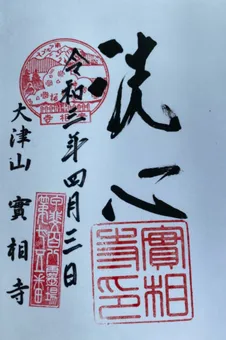 洗心
令和三年四月三日
大津山 實相寺
實相寺印